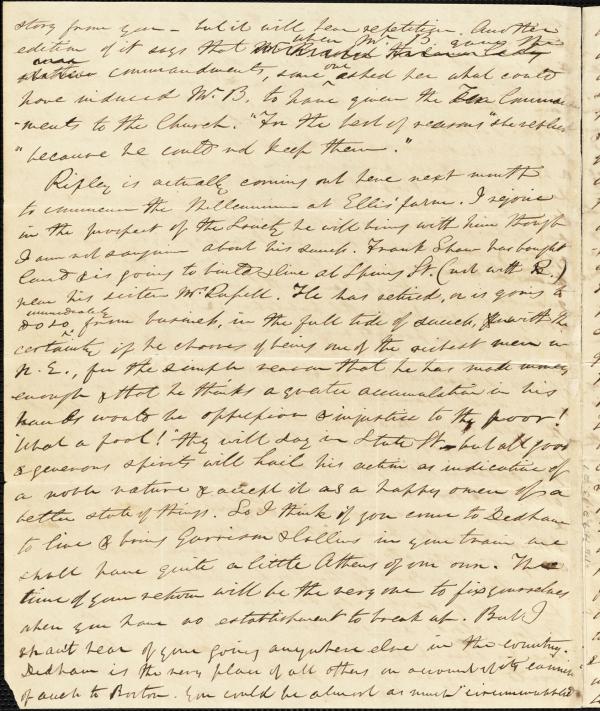 story from you – but it will bear repetition. Another
edition of it says that when Mr. B. gave the
commandments, some one asked her what could
have induced Mr. B. to have given the Ten Command
-ments to the Church. "For the best of reasons" she replied
"because he could not keep them."
Ripley is actually coming out here next month
to commence the Millennium at Ellis' farm. I rejoice
in the prospect of the Society he will bring with him though
I am not sanguine about his success. Frank Shaw has bought
land & is going to build & live at Spring St. (not with R.)
near his sister Mrs Russell. He has retired, or is going to
do so immediately from business, in the full tide of success, & with the
certainty if he chooses of being one of the richest men in
N. E., for the simple reason that he has made money
enough & that he thinks a greater accumulation in his
hands would be oppression & injustice to the poor!
"What a fool!" they will say in State St. – but all good
& generous spirits will hail his action as indicative of
a noble nature & accept it as a happy omen of a
better state of things. So I think if you come to Dedham
to live & bring Garrison & Collins in your train we
shall have quite a little Athens of our own. The
time of your return will be the very one to fix yourselves
when you have no establishment to break up. But I
shan't hear of your going anywhere else in the country.
Dedham is the very place of all others on account of its
of access to Boston. You could be almost as much